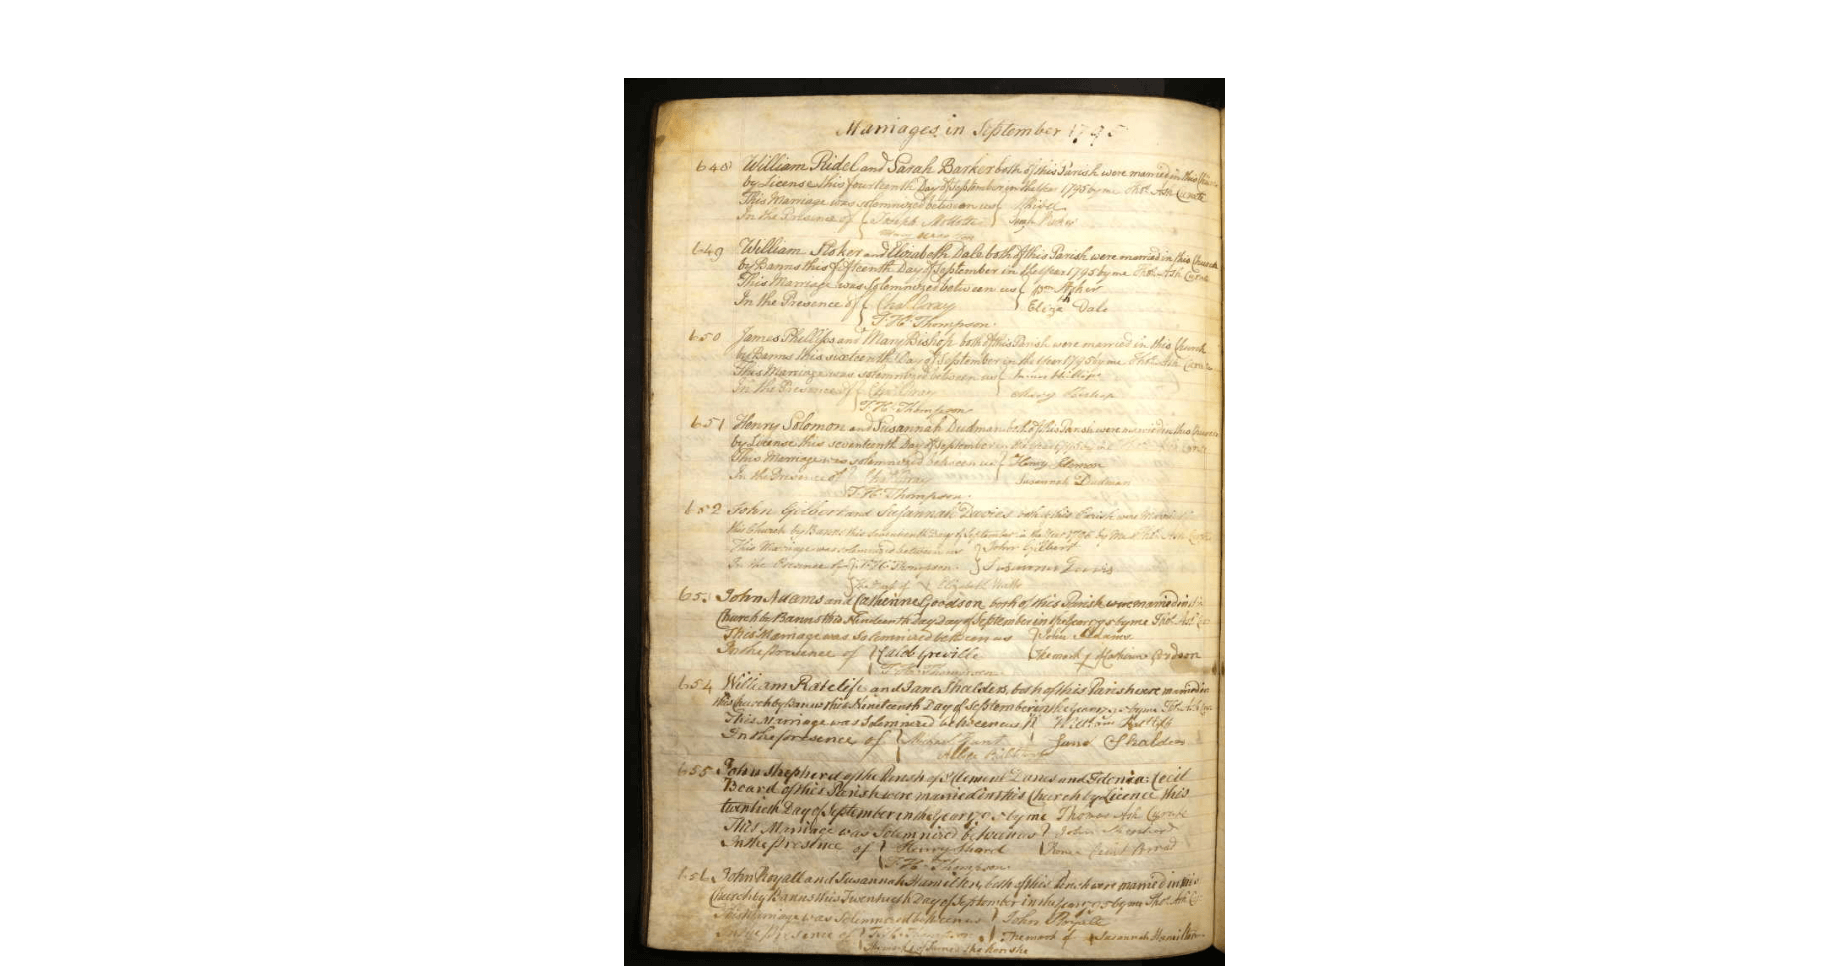 Marriages in September 1795
648 William Ridel and Sarah Barker both of this Parish were married in this
by License this fourteenth Day of September in the Year 1795 by me Thos. Ash Curate
This Marriage was solemnized between us
In the Presence of Joseph
649 William Stoker and Elizabeth Dale both of this Parish were married in this Church
by Banns this fifteenth Day of September in the Year 1795 by me Thos. Ash Curate
This Marriage was solemnized between us Wm Stoker
In the Presence of Chas. Gray Elizth Dale
T. H. Thompson
650 James Phillips and Mary Bishop both of this Parish were married in this Church
by Banns this sixteenth Day of September in the Year 1795 by me Thos. Ash Curate
This Marriage was solemnized between us James Phillips
In the Presence of Chas. Gray Mary Bishop
T. H. Thompson
651 Henry Solomon and Susannah Dudman both of this Parish were married in this Church
by License this seventeenth Day of September in the Year 1795 by me
This Marriage was solemnized between us Henry Solomon
In the Presence of Chas. Gray Susannah Dudman
T. H. Thompson
652 John Gilbert and Susannah Davies both of this Parish was
this Church by Banns this seventeenth Day of September in the Year 1795 by Me Thos. Ash Curate
This Marriage was solemnized between us John Gilbert
In the Presence of T. H. Thompson Susanna Davis
The Mark of Elizabeth Watts
653 John Adams and Catherine Goodson both of this Parish were married in
Church by Banns this Nineteenth Day Day of September in the Year by me Thos. Ash
This Marriage was Solemnized between us John Addams
In the presence of Caleb Greville The mark of Catherine Goodson
T. H. Thompson
654 William Ratclife and Jane Shalders, both of this Parish were married in
this Church by Banns this Nineteenth Day of September in the Year by me Thos. Ash
This Marriage was Solemnized between us William
In the presence of Michael Jane Shalders
655 John Shepherd of the Parish of St Clement Danes and Cecil
Beard of this Parish were married in this Church by Licence this
twentieth Day of September in the Year by me Thomas Ash Curate
This Marriage was Solemnized between us John
In the presence of Henry
T. H. Thompson
656 John Royall and Susannah Hamilton, both of this Parish were married in this
Church by Banns this Twentieth Day of September in the Year by me Thos. Ash
This Marriage was Solemnized between us John Royall
In the presence of The mark of Susannah Hamilton
The mark of James